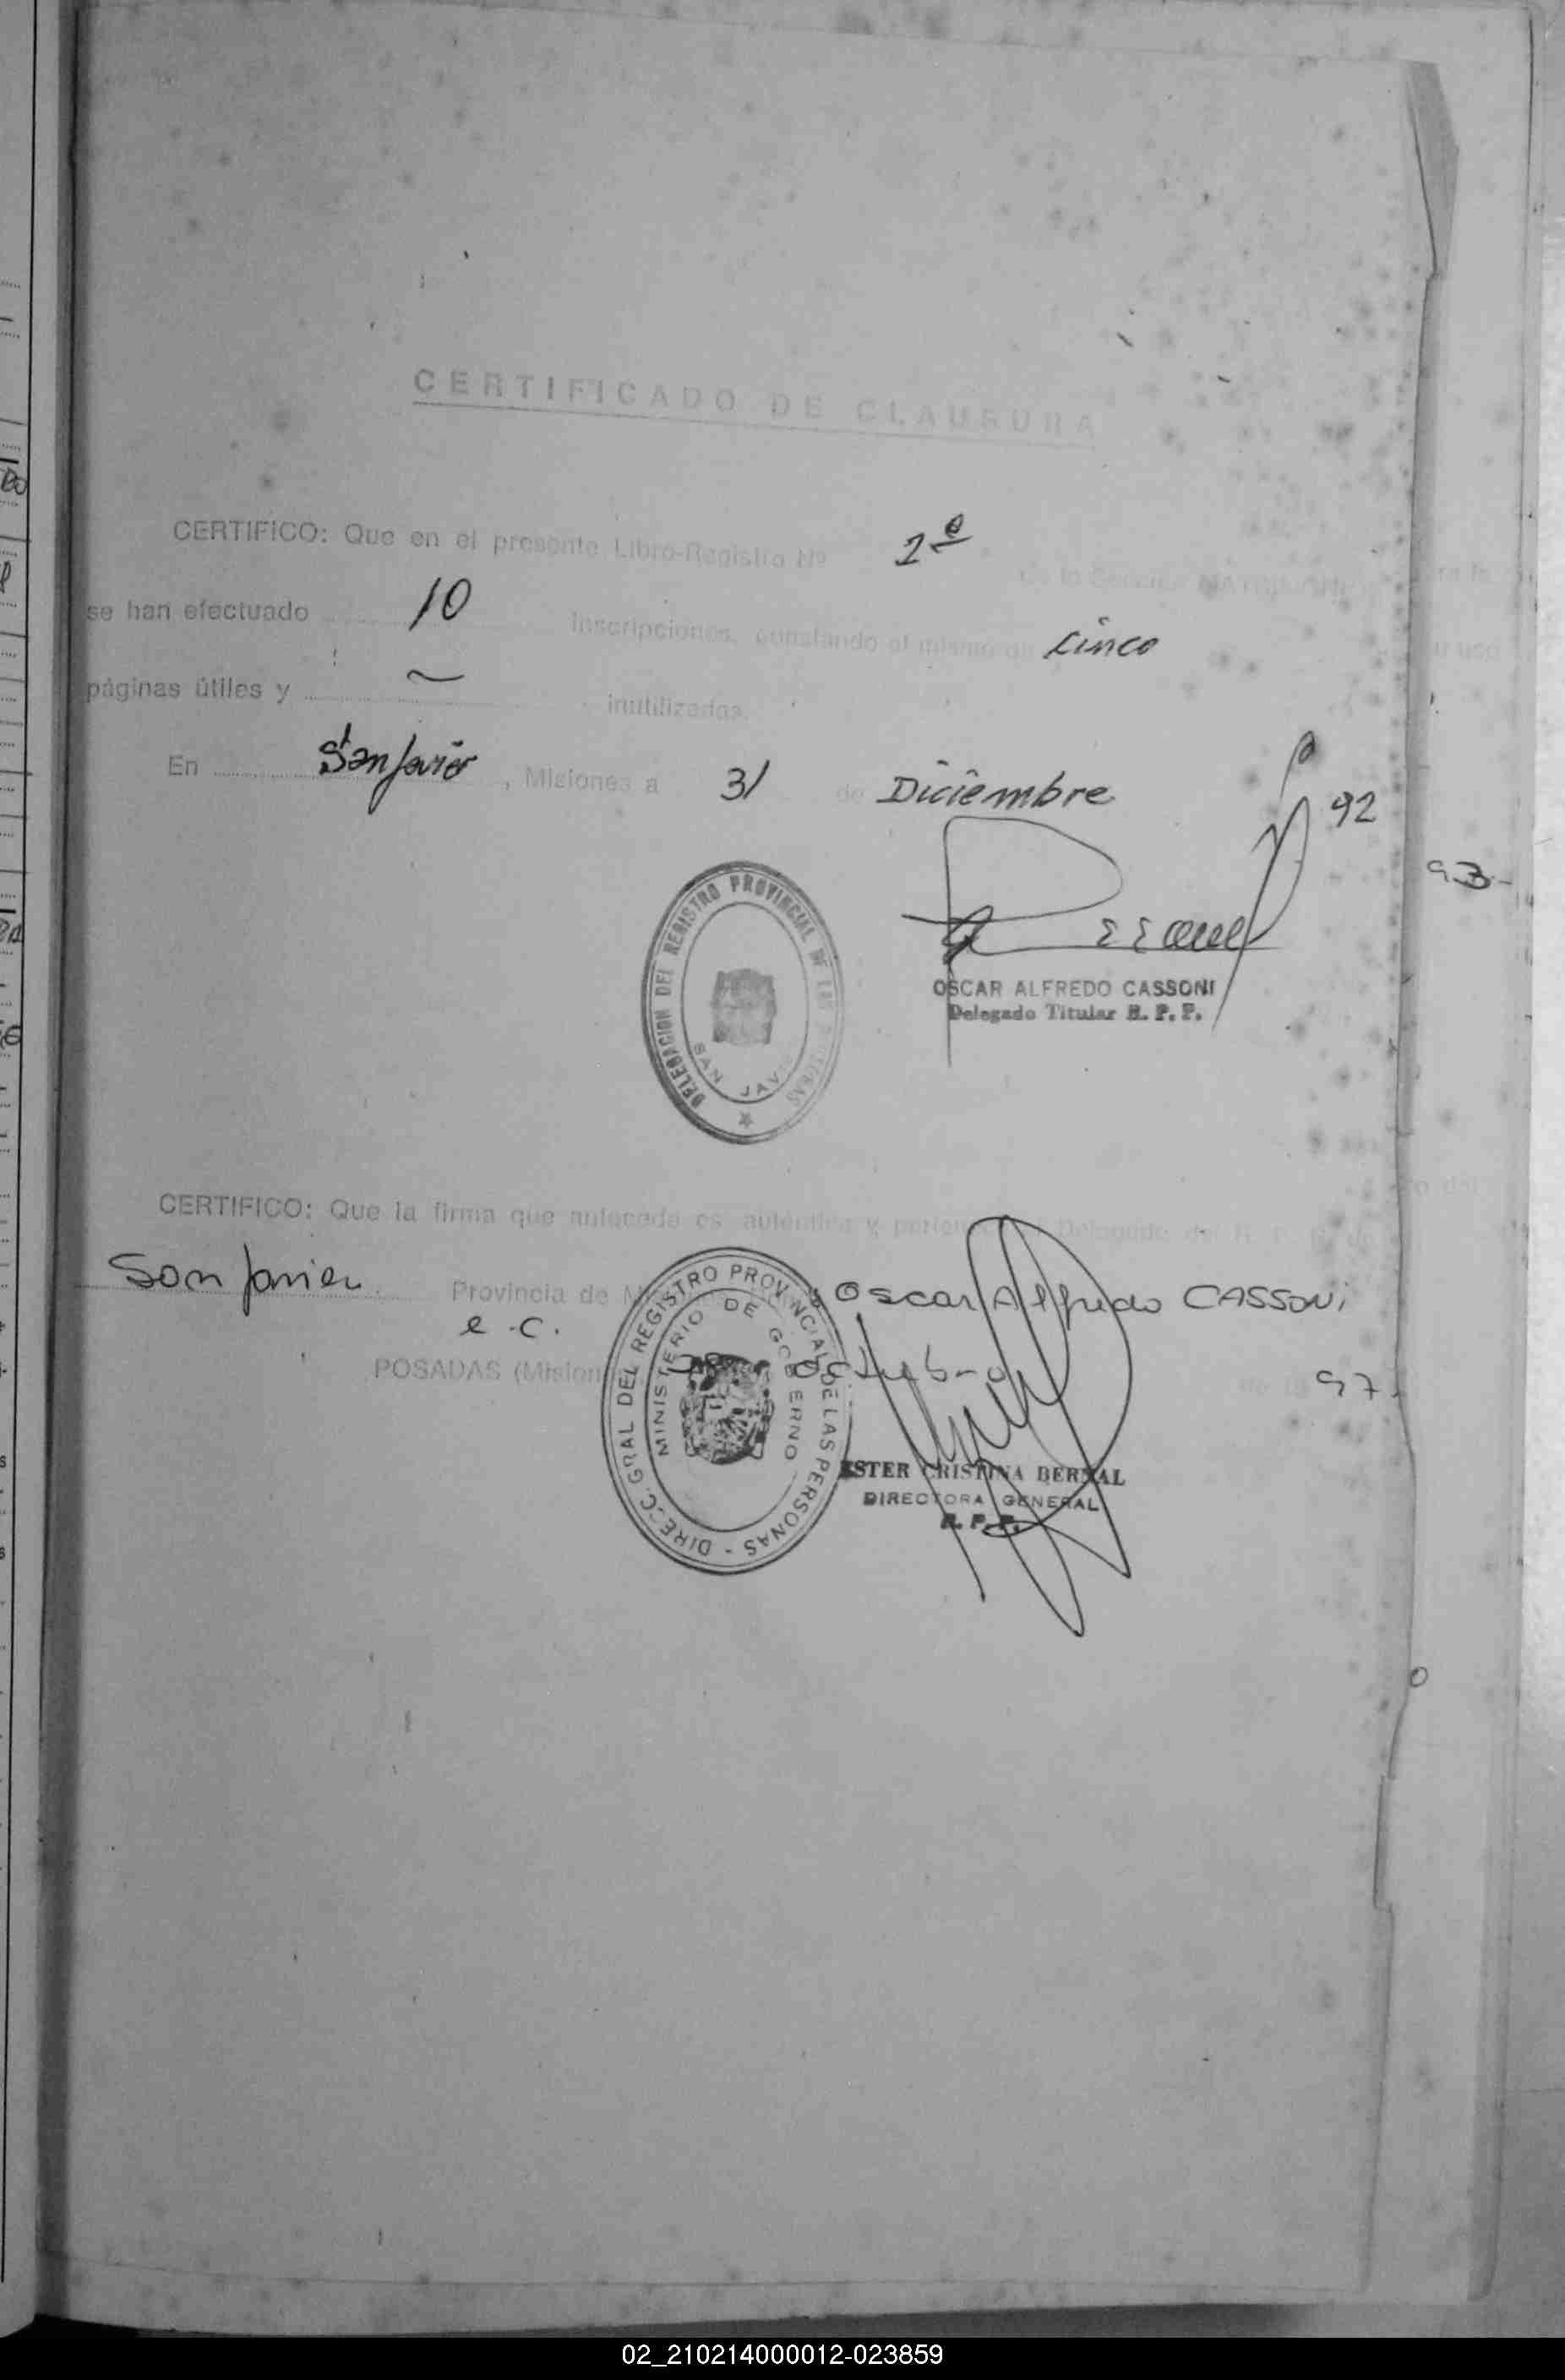 CERTIFICADO DE CLAUSURA
CERTIFICO: Que en el presente Libro-Registro Nº 2º de la Sección
se han efectuado 10 inscripciones, constando el mismo de cinco
páginas útiles y ~ inutilizadas.
En San Javier, Misiones a 31 de Diciembre 92
93-
DELEGACION DEL REGISTRO PROVINCIAL DE LAS PERSONAS
SAN JAVIER
OSCAR ALFREDO CASSONI
Delegado Titular R. P. P.
CERTIFICO: Que la firma que antecede es auténtica y Delegado del R. P. P. de
San Javier Provincia de Oscar Alfredo CASSONi
e.c.
POSADAS (Mision 28 octubre de 19 97.
DIRECC. GRAL DEL REGISTRO PROVINCIAL DE LAS PERSONAS -
MINISTERIO DE GOBERNO
ESTER CRISTINA BERNAL
DIRECTORA GENERAL
R. P. P.
02_210214000012-023859